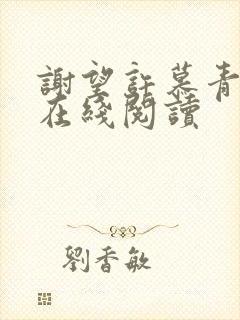 謝望許慕青
在綫閱讀
劉香敏